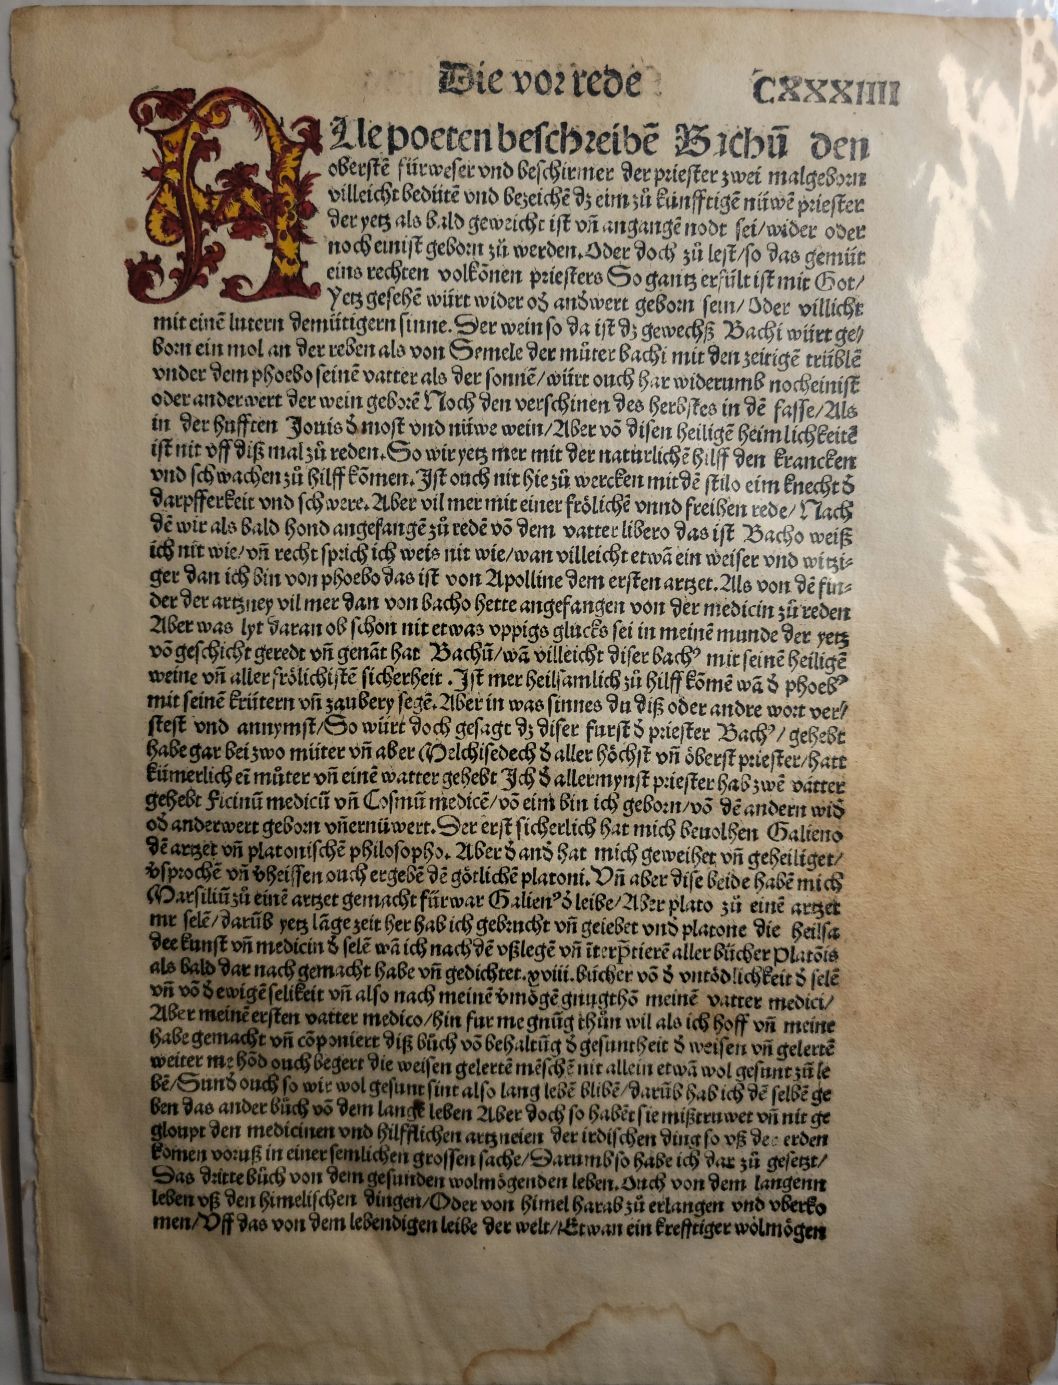 Die vorrede CXXXIIII
Alle poeten beschreibē Bachū den
oberstē fürweser vnd beschirmer der priester zwei malgeborn
villeicht bedütē vnd bezeichē dz eim zů künfftigē nüwē priester
der yetz als bald geweicht ist vñ angangē nodt sei/wider oder
noch einist geborn zů werden. Oder doch zů lest/so das gemüt
eins rechten volkōnen priesters So gantz erfült ist mit Got/
Yetz gesehē würt wider od̛ and̛wert geborn sein/Oder villicht
mit einē lutern demütigern sinne. Der wein so da ist dz gewechß Bachi würt ge/
born ein mol an der reben als von Semele der můter bachi mit den zeitigē trüblē
vnder dem phoebo seinē vatter als der sonnē/würt ouch har widerumb nocheinist
oder anderwert der wein geborē Noch den verschinen des herbstes in dē fasse/Als
in der hufften Jouis d̛ most vnd nüwe wein/Aber vō disen heiligē heimlichkeitē
ist nit vff diß mal zů reden. So wir yetz mer mit der naturlichē hilff den krancken
vnd schwachen zů hilff kōmen. Ist ouch nit hie zů wercken mit dē stilo eim knecht d̛
darpfferkeit vnd schwere. Aber vil mer mit einer frölichē vnnd freihen rede/Nach
dē wir als bald hond angefangē zů redē vō dem vatter libero das ist Bacho weiß
ich nit wie/vñ recht sprich ich weis nit wie/wan villeicht etwā ein weiser vnd witzi-
ger dan ich bin von phoebo das ist von Apolline dem ersten artzet. Als von dē fin-
der der artzney vil mer dan von bacho hette angefangen von der medicin zů reden
Aber was lyt daran ob schon nit etwas vppigs glücks sei in meinē munde der yetz
vō geschicht geredt vñ genāt hat Bachū/wā villeicht diser bachꝰ mit seinē heiligē
weine vñ aller frölichistē sicherheit. Ist mer heilsamlich zů hilff kōmē wā d̛ phoebꝰ
mit seinē krütern vñ zaubery segē. Aber in was sinnes du diß oder andre wort ver/
stest vnd annymst/So würt doch gesagt dz diser furst d̛ priester Bachꝰ/gehebt
habe gar bei zwo müter vñ aber Melchisedech d̛ aller höchst vñ öberst priester/hatt
kümerlich eī můter vñ einē watter gehebt Ich d̛ allermynst priester hab zwē vätter
gehebt Ficinū medicū vñ Cosmū medicē/vō eim bin ich geborn/vō dē andern wid̛
od̛ anderwert geborn vñ ernüwert. Der erst sicherlich hat mich beuolhen Galieno
dē artzet vñ platonischē philosopho. Aber d̛ and̛ hat mich geweihet vñ geheiliget/
v̛sprochē vñ v̛heissen ouch ergebē dē götlichē platoni. Vñ aber dise beide habē mich
Marsiliū zů einē artzet gemacht fürwar Galienꝰ d̛ leibe/Aber plato zů einē artzet
mr selē/darūb yetz lāge zeit her hab ich gebrucht vñ geiebet vnd platone die heilsa
dee kunst vñ medicin d̛ selē wā ich nach dē vßlegē vñ īterp̄tierē aller bücher Platōis
als bald dar nach gemacht habe vñ gedichtet. xviii. bücher vō d̛ vntödlichkeit d̛ selē
vñ vō d̛ ewigē selikeit vñ also nach meinē v̛mögē gnůgthō meinē vatter medici/
Aber meinē ersten vatter medico/hin fur me gnůg thůn wil als ich hoff vñ meine
habe gemacht vñ cōponiert diß bůch vō behaltūg d̛ gesuntheit d̛ weisen vñ gelertē
weiter me hōd ouch begert die weisen gelertē mēschē nit allein etwā wol gesunt zů le
bē/Sund̛ ouch so wir wol gesunt sint also lang lebē blibē/darūb hab ich dē selbē ge
ben das ander bůch vō dem lange leben Aber doch so habēt sie mißtruwet vñ nit ge
gloupt den medicinen vnd hilfflichen artzneien der irdischen ding so vß der erden
komen voruß in einer semlichen grossen sache/Darumb so habe ich dar zů gesetzt/
Das dritte bůch von dem gesunden wolmögenden leben. Ouch von dem langenn
leben vß den himelischen dingen/Oder von himel harab zů erlangen vnd vberko
men/Vff das von dem lebendigen leibe der welt/Etwan ein krefftiger wolmögen